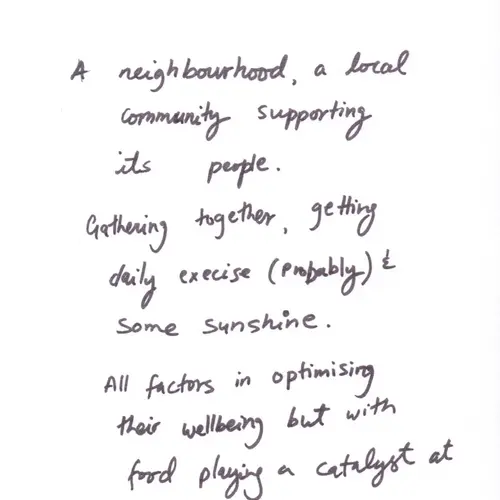 A neighbourhood, a local
community supporting
its people.
Gathering together, getting
daily execise (probably) &
some sunshine.
All factors in optimising
their wellbeing but with
food playing a catalyst at